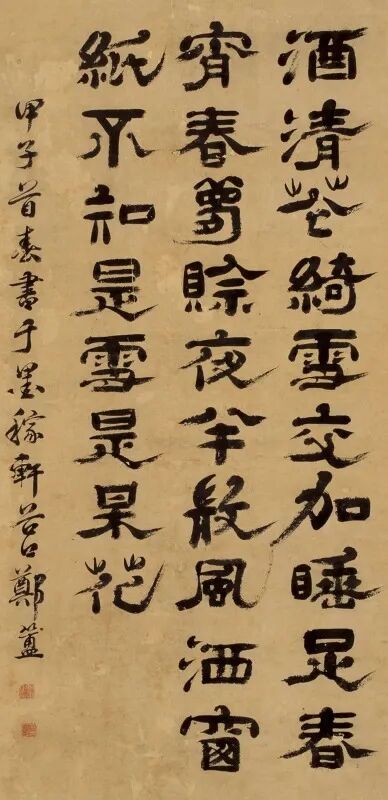 酒清花綺雪交加睡足春
宵春夢賒夜半散風洒窗
紙不知是雪是呆花
甲子首春書于墨稼軒谷口鄭簠